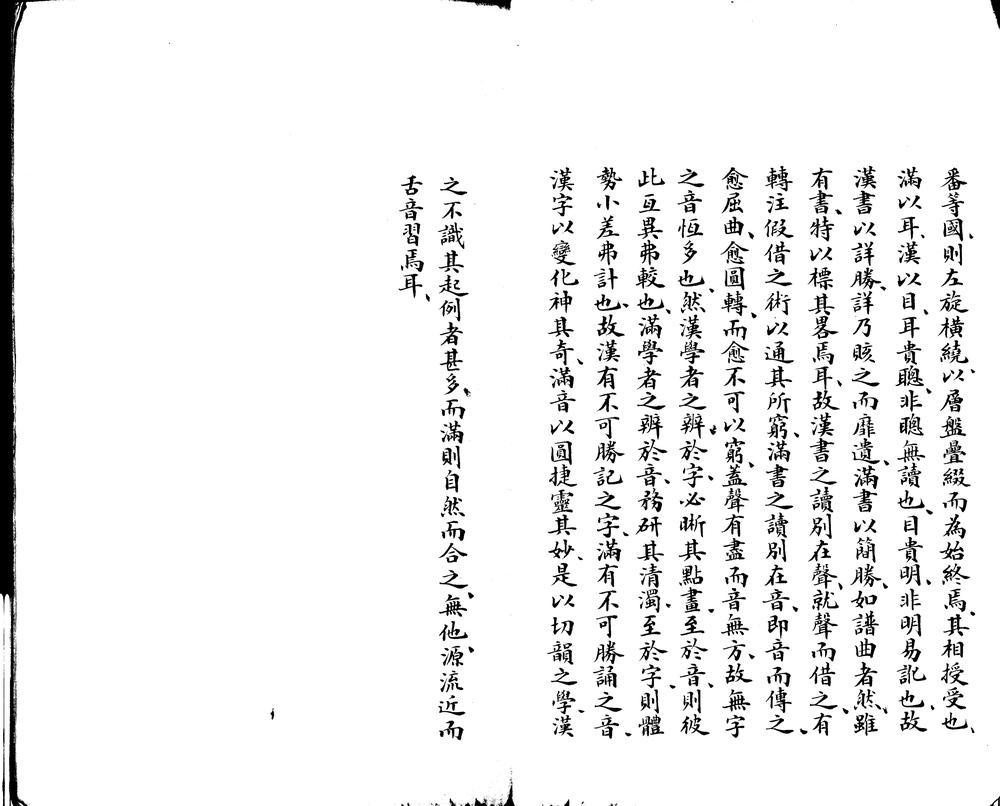 番等國、則左旋横繞、以層盤疊綴而為始終焉、其相授受也、
滿以耳、漢以目、耳貴聰、非聰無讀也、目貴明、非明易訛也、故
漢書以詳勝、詳乃賅之而靡遺、滿書以簡勝、如譜曲者然、雖
有書、特以標其畧焉耳、故漢書之讀別在聲、就聲而借之、有
轉注假借之術以通其所窮、滿書之讀別在音、即音而傳之、
愈屈曲、愈圓轉、而愈不可以窮、蓋聲有盡而音無方、故無字
之音恆多也、然漢學者之辨於字、必晰其點畫、至於音、則彼
此亙異弗較也、滿學者之辨於音、務研其清濁、至於字、則體
勢小差弗計也、故漢有不可勝記之字、滿有不可勝誦之音、
漢字以變化神其奇、滿音以圓捷靈其妙、是以切韻之學、漢
之不識其起例者甚多、而滿則自然而合之、無他、源流近而
舌音習焉耳、